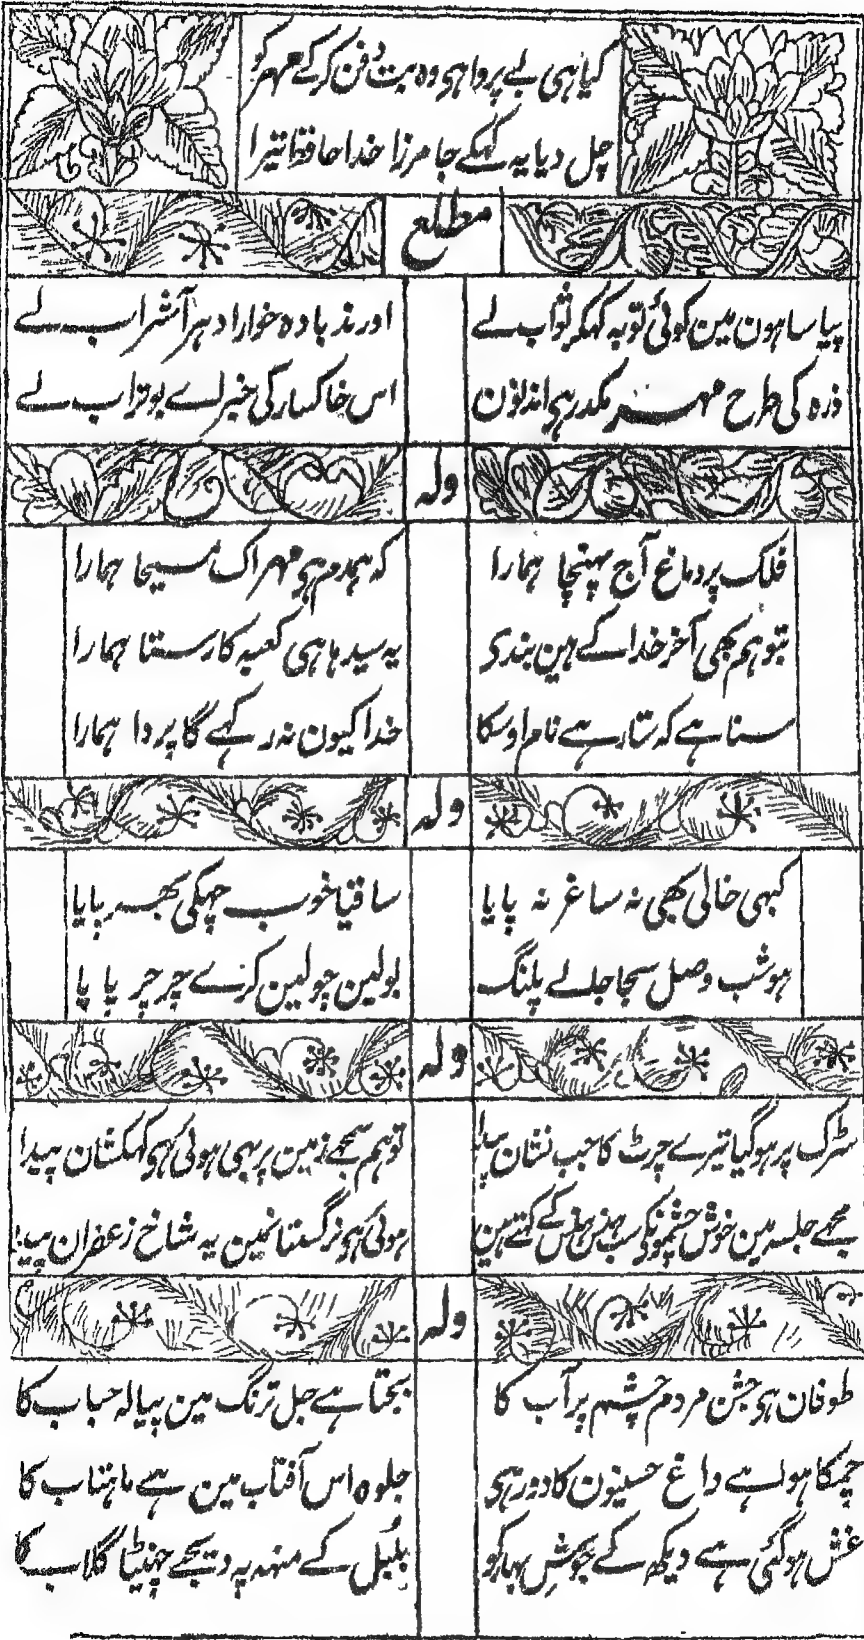 کیا ہی بے پروا ہی وہ بت دفن کرکے مہر کو
چل دیا یہ کہکے جا مرزا خدا حافظ تیرا
مطلع
پیاسا ہون مین کوئی توبہ کہکر ثواب لے اور ند بادہ خوار ادہر آ شراب لے
ذرہ کی طرح مہر مکدر ہی اندنون اس خاکسار کی خبر اے بوتراب لے
ولہ
فلک پر دماغ آج پہنچا ہمارا کہ ہمدم ہی مہر اک مسیحا ہمارا
بتو ہم بھی آخر خدا کے ہین بندی یہ سیدہا ہی کعبہ کا رستا ہمارا
سنا ہے کہ ستار ہے نام اوسکا خدا کیون نہ رکہے گا پردا ہمارا
ولہ
کبہی خالی کبھی نہ ساغر نہ پایا ساقیا خوب چہکی بھر پایا
ہو شب وصل سجا جلے پلنگ بولین چولین کرے چرچر پا پا
ولہ
سڑک پر ہوگیا تیرے چرٹ کا جب نشان پیدا تو ہم سمجھے زمین پر بہی ہوئی ہی کہکشان پیدا
مجھے جلسہ مین خوش چشمونکی سب ہنس ہنس کے کہتے ہین ہوئی ہی نرگستانمین یہ شاخ زعفران پیدا
ولہ
طوفان ہی جشن مردم چشم پر آب کا بجتا ہے جل ترنگ مین پیالہ حباب کا
چمکا ہوا ہے داغ حسینون کا دور ہی جلوہ اس آفتاب مین ہے ماہتاب کا
غش ہوگئی ہے دیکھ کے جوش بہار کو بلبل کے منہہ پہ دیجے چھنیٹا گلاب کا